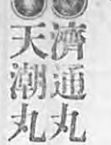 濟通丸
天潮丸